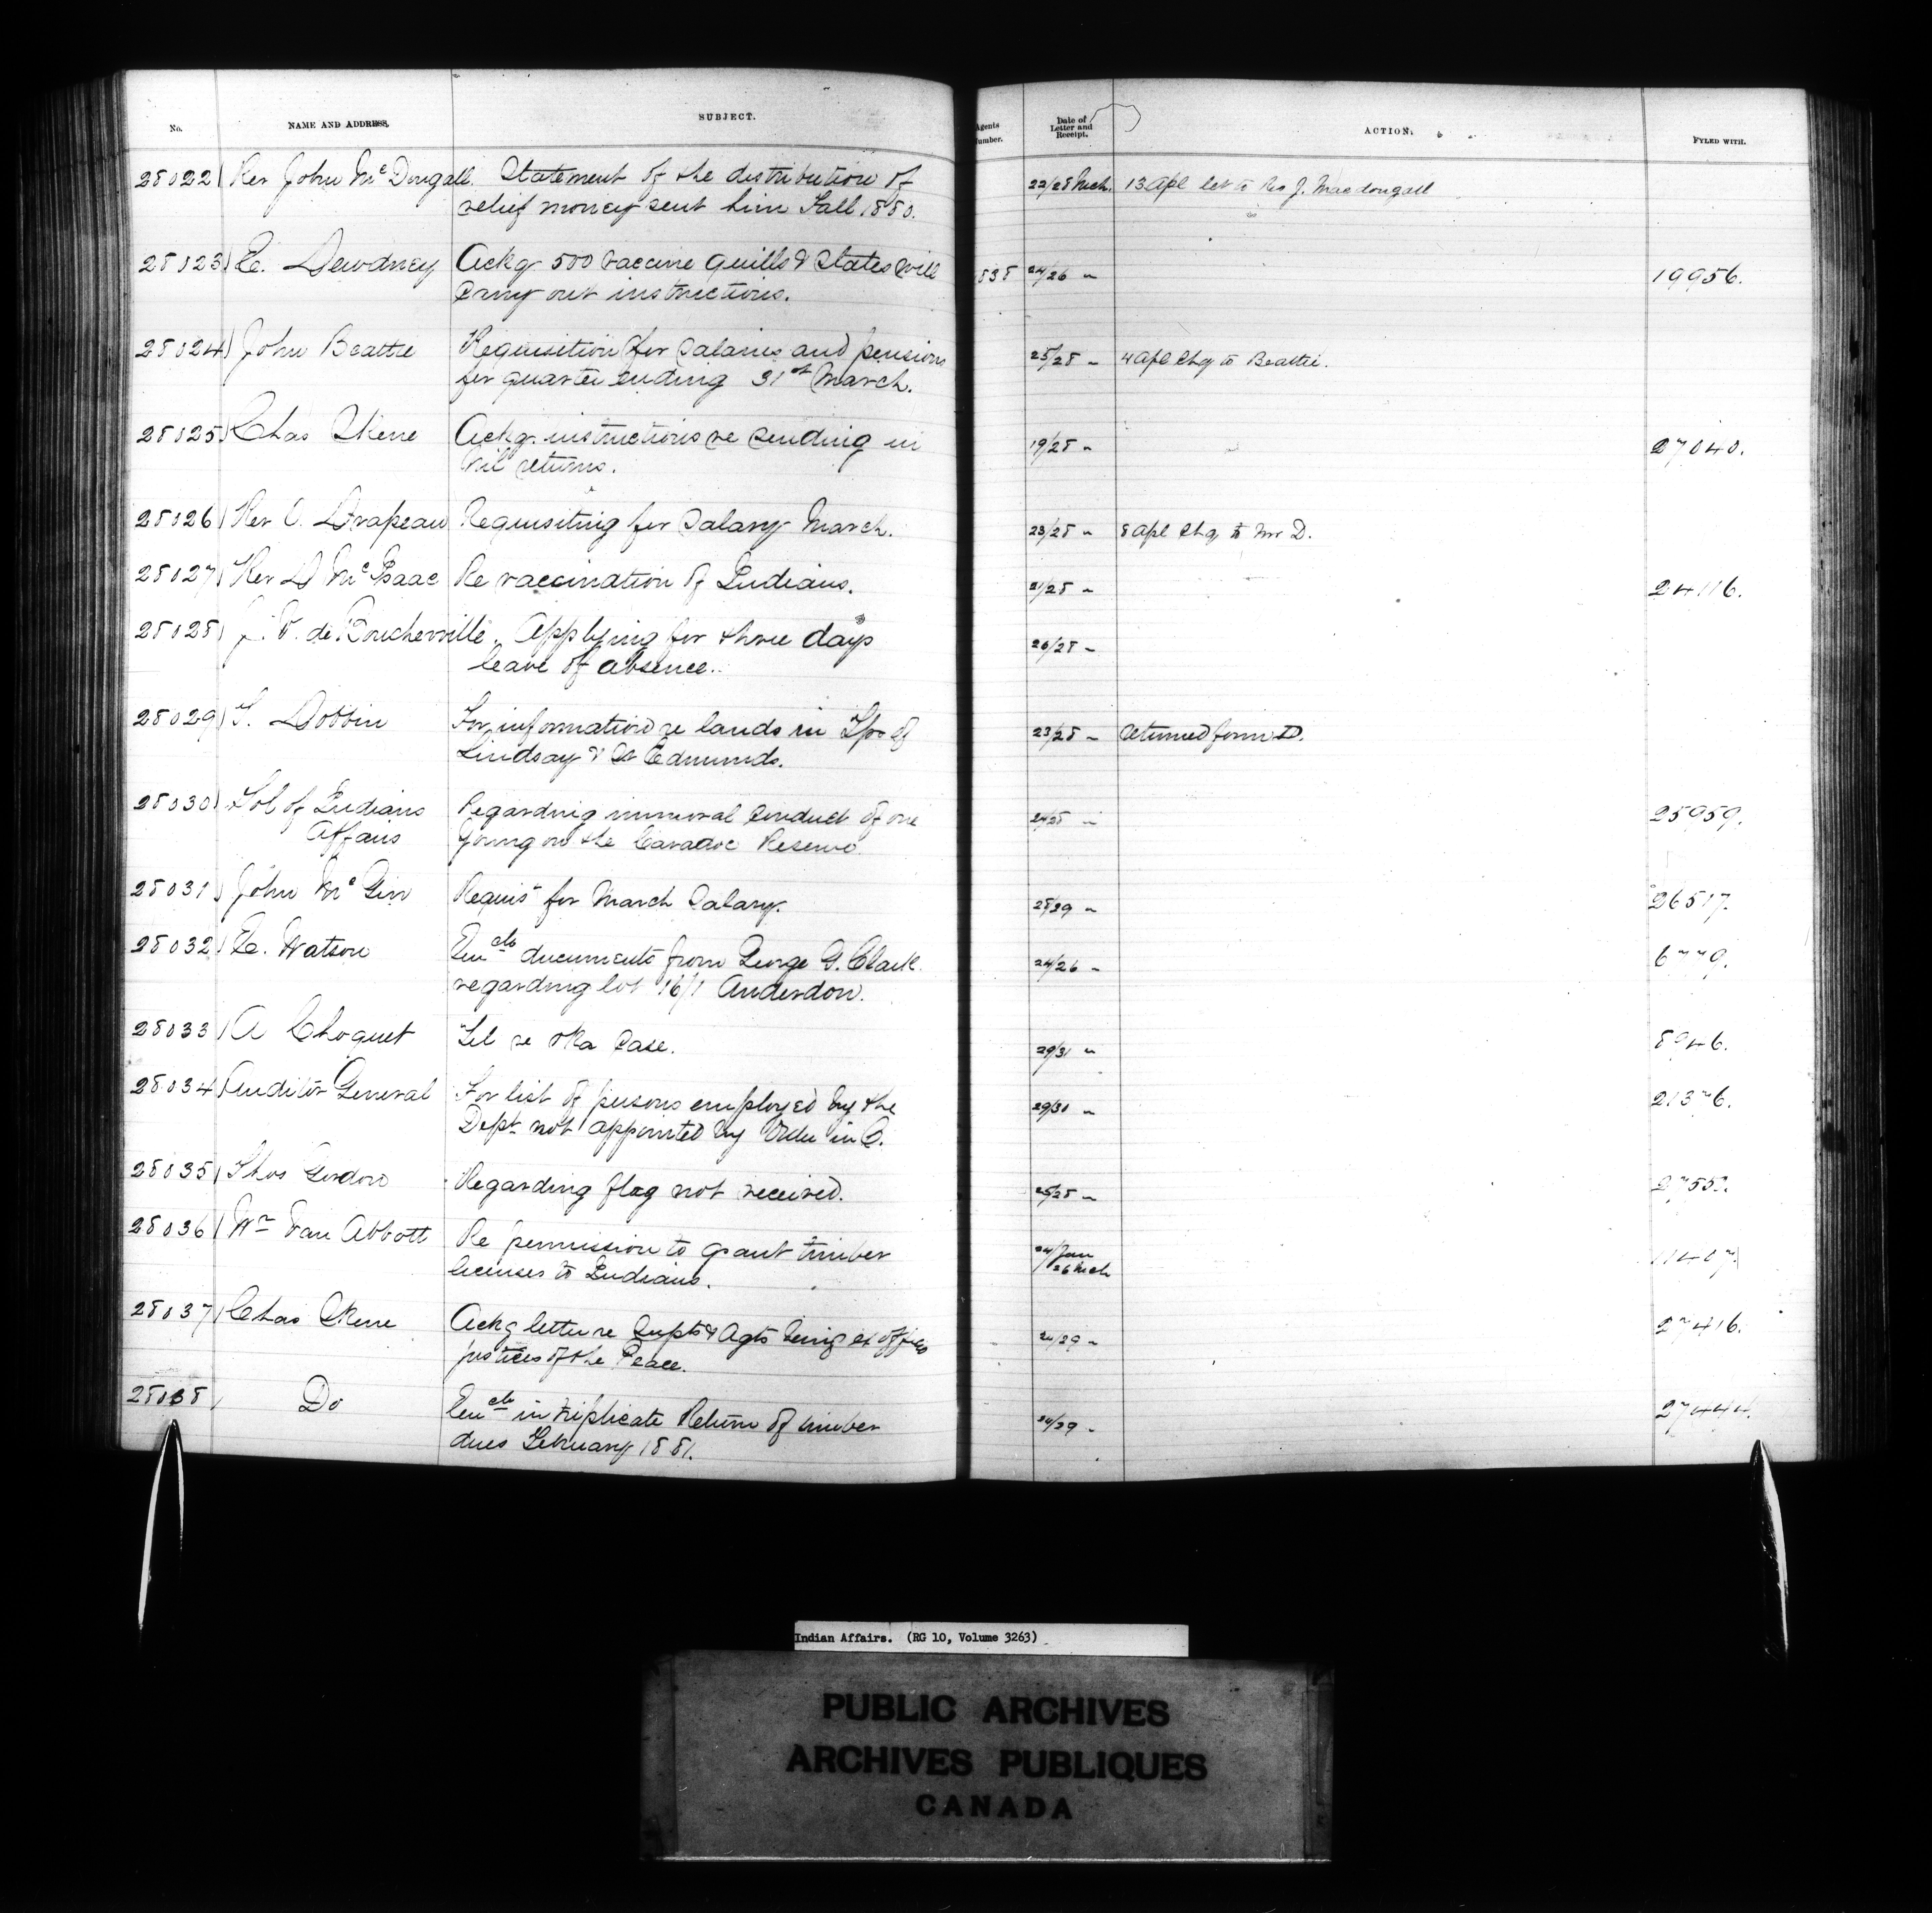 No. NAME AND ADDRESS. SUBJECT. Agents Number. Date of Letter and Receipt. ACTION. FYLED WITH.
28022 Rev John McDougall. Statement of the distribution of 22/28 Mch. 13 Apl let to Rev J. Macdougall
relief money sent him Fall 1880.
28023 E. Dewdney Ackg 500 vaccine quills & states will 838 24/26 " 19956.
carry out instructions.
28024 John Beattie Requisition for salaries and pensions 25/28 " 4 Apl Chq to Beattie.
for quarter ending 31st March.
28025 Chas Skene Ackg. instructions re sending in 19/28 " 27040.
Nil returns.
28026 Rev O. Drapeau Requisiting for salary March. 23/28 " 8 Apl Chq to Mr D.
28027 Rev D McIsaac Re vaccination of Indians. 21/28 " 24116.
28028 de Boucherville. Applying for three days 26/28 "
leave of absence.
28029 T. Dobbin For information re lands in Tps of 23/28 " Returned form D.
Lindsay & St Edmunds.
28030 Sol of Indians Regarding immoral conduct of one 24/28 " 25959.
Affairs Young on the Caradoc Reserve.
28031 John McGirr Requis for March Salary. 28/29 " 26517.
28032 E. Watson Encl documents from George G. Clark 24/26 " 6779.
regarding lot 16/1 Anderdon.
28033 A Choquet Tel re Oka Case. 29/31 " 8946.
28034 Auditor General For list of persons employed by the 29/31 " 21376.
Dept not appointed by Order in C.
28035 Thos Gordon Regarding flag not received. 25/28 "
28036 Wm Van Abbott Re permission to grant timber 24/Jan
licenses to Indians. 26 Mch
28037 Chas Skene Ackg letter re Supts & Agts being ex officio 24/29 " 27416.
justices of the Peace.
28038 Do Encls in triplicate Return of timber 24/29 " 27444.
dues February 1881.
Indian Affairs. (RG 10, Volume 3263)
PUBLIC ARCHIVES
ARCHIVES PUBLIQUES
CANADA